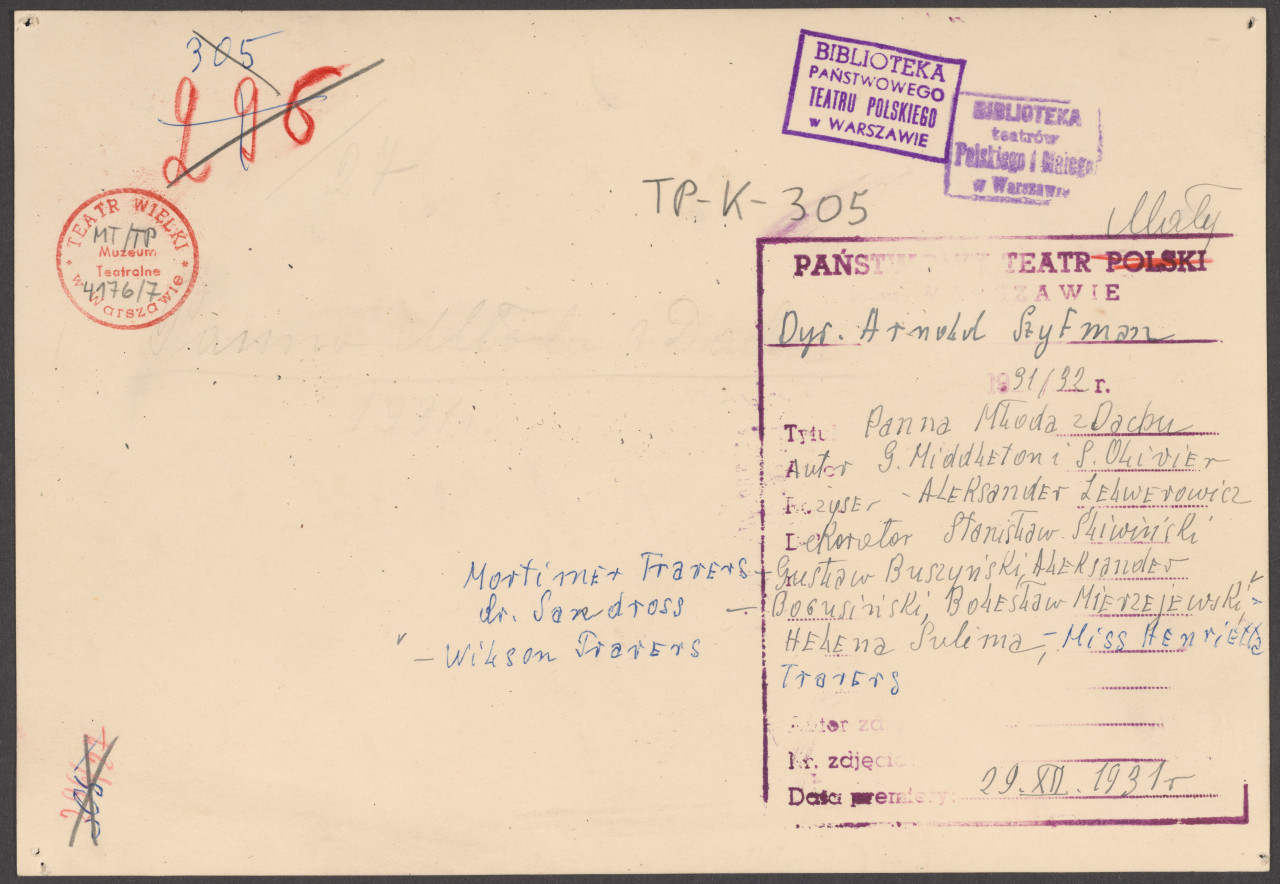 305
296
BIBLIOTEKA
PAŃSTWOWEGO
TEATRU POLSKIEGO
w WARSZAWIE
BIBLIOTEKA
teatrów
Polskiego i Małego
w Warszawie
TP-K-305
TEATR WIELKI
MT/TP
Muzeum
Teatralne
4176/7
w Warszawie
Mały
PAŃSTWOWY TEATR POLSKI
W WARSZAWIE
Dyr. Arnold Szyfman
1931/32 r.
Tytuł Panna Młoda z Dachu
Autor G. Middleton i S. Olivier
Reżyser - Aleksander Zelwerowicz
Dekorator Stanisław Śliwiński
Mortimer Travers - Gustaw Buszyński, Aleksander
dr. Sandross - Bogusiński, Bolesław Mierzejewski -
- Wilson Travers
Helena Sulima, - Miss Henrietta
Travers
Autor zdj
Nr. zdjęcia
Data premiery: 29.XII.1931 r